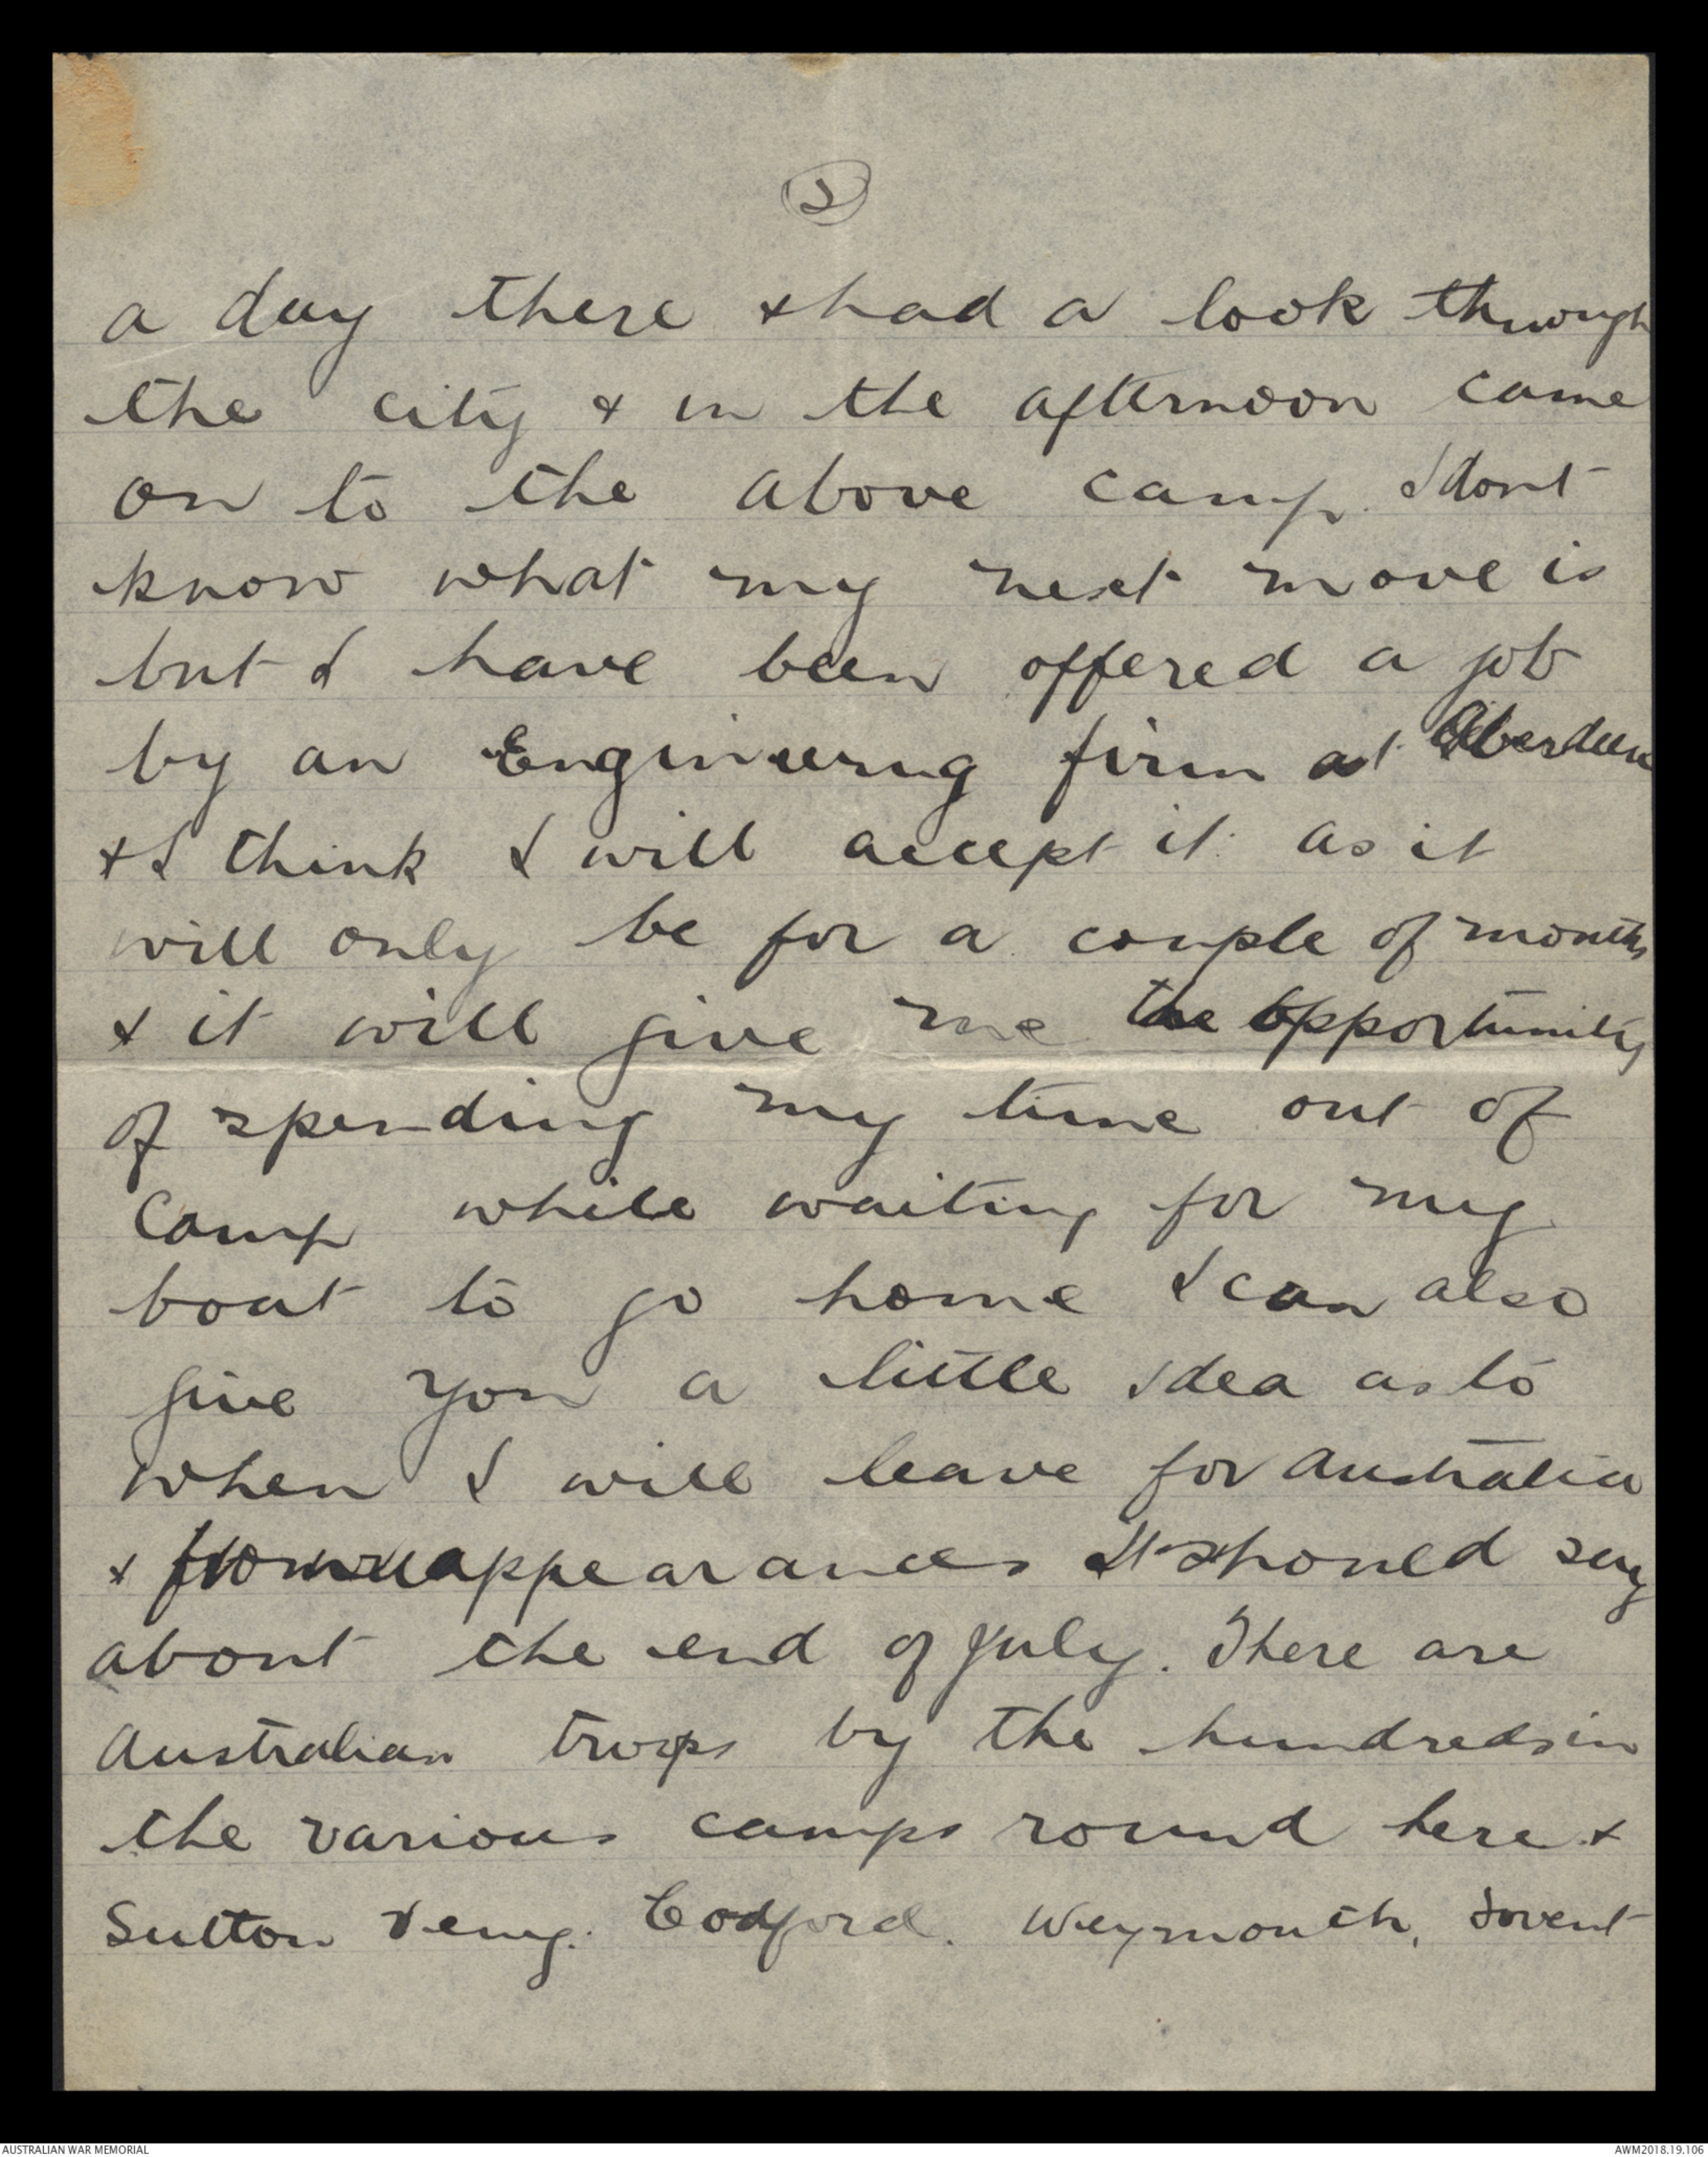 2
a day there & had a look through
the city & in the afternoon came
on to the above camp. I dont
know what my next move is
but I have been offered a job
by an Engineering firm at Aberdeen
& I think I will accept it as it
will only be for a couple of months
& it will give me the opportunity
of spending my time out of
Camp while waiting for my
boat to go home I can also
give you a little idea as to
when I will leave for Australia
& from appearances I should say
about the end of July. There are
Australian troops by the hundreds in
the various camps round here &
Sutton Veny. Codford. Weymouth,
AUSTRALIAN WAR MEMORIAL
AWM2018.19.106